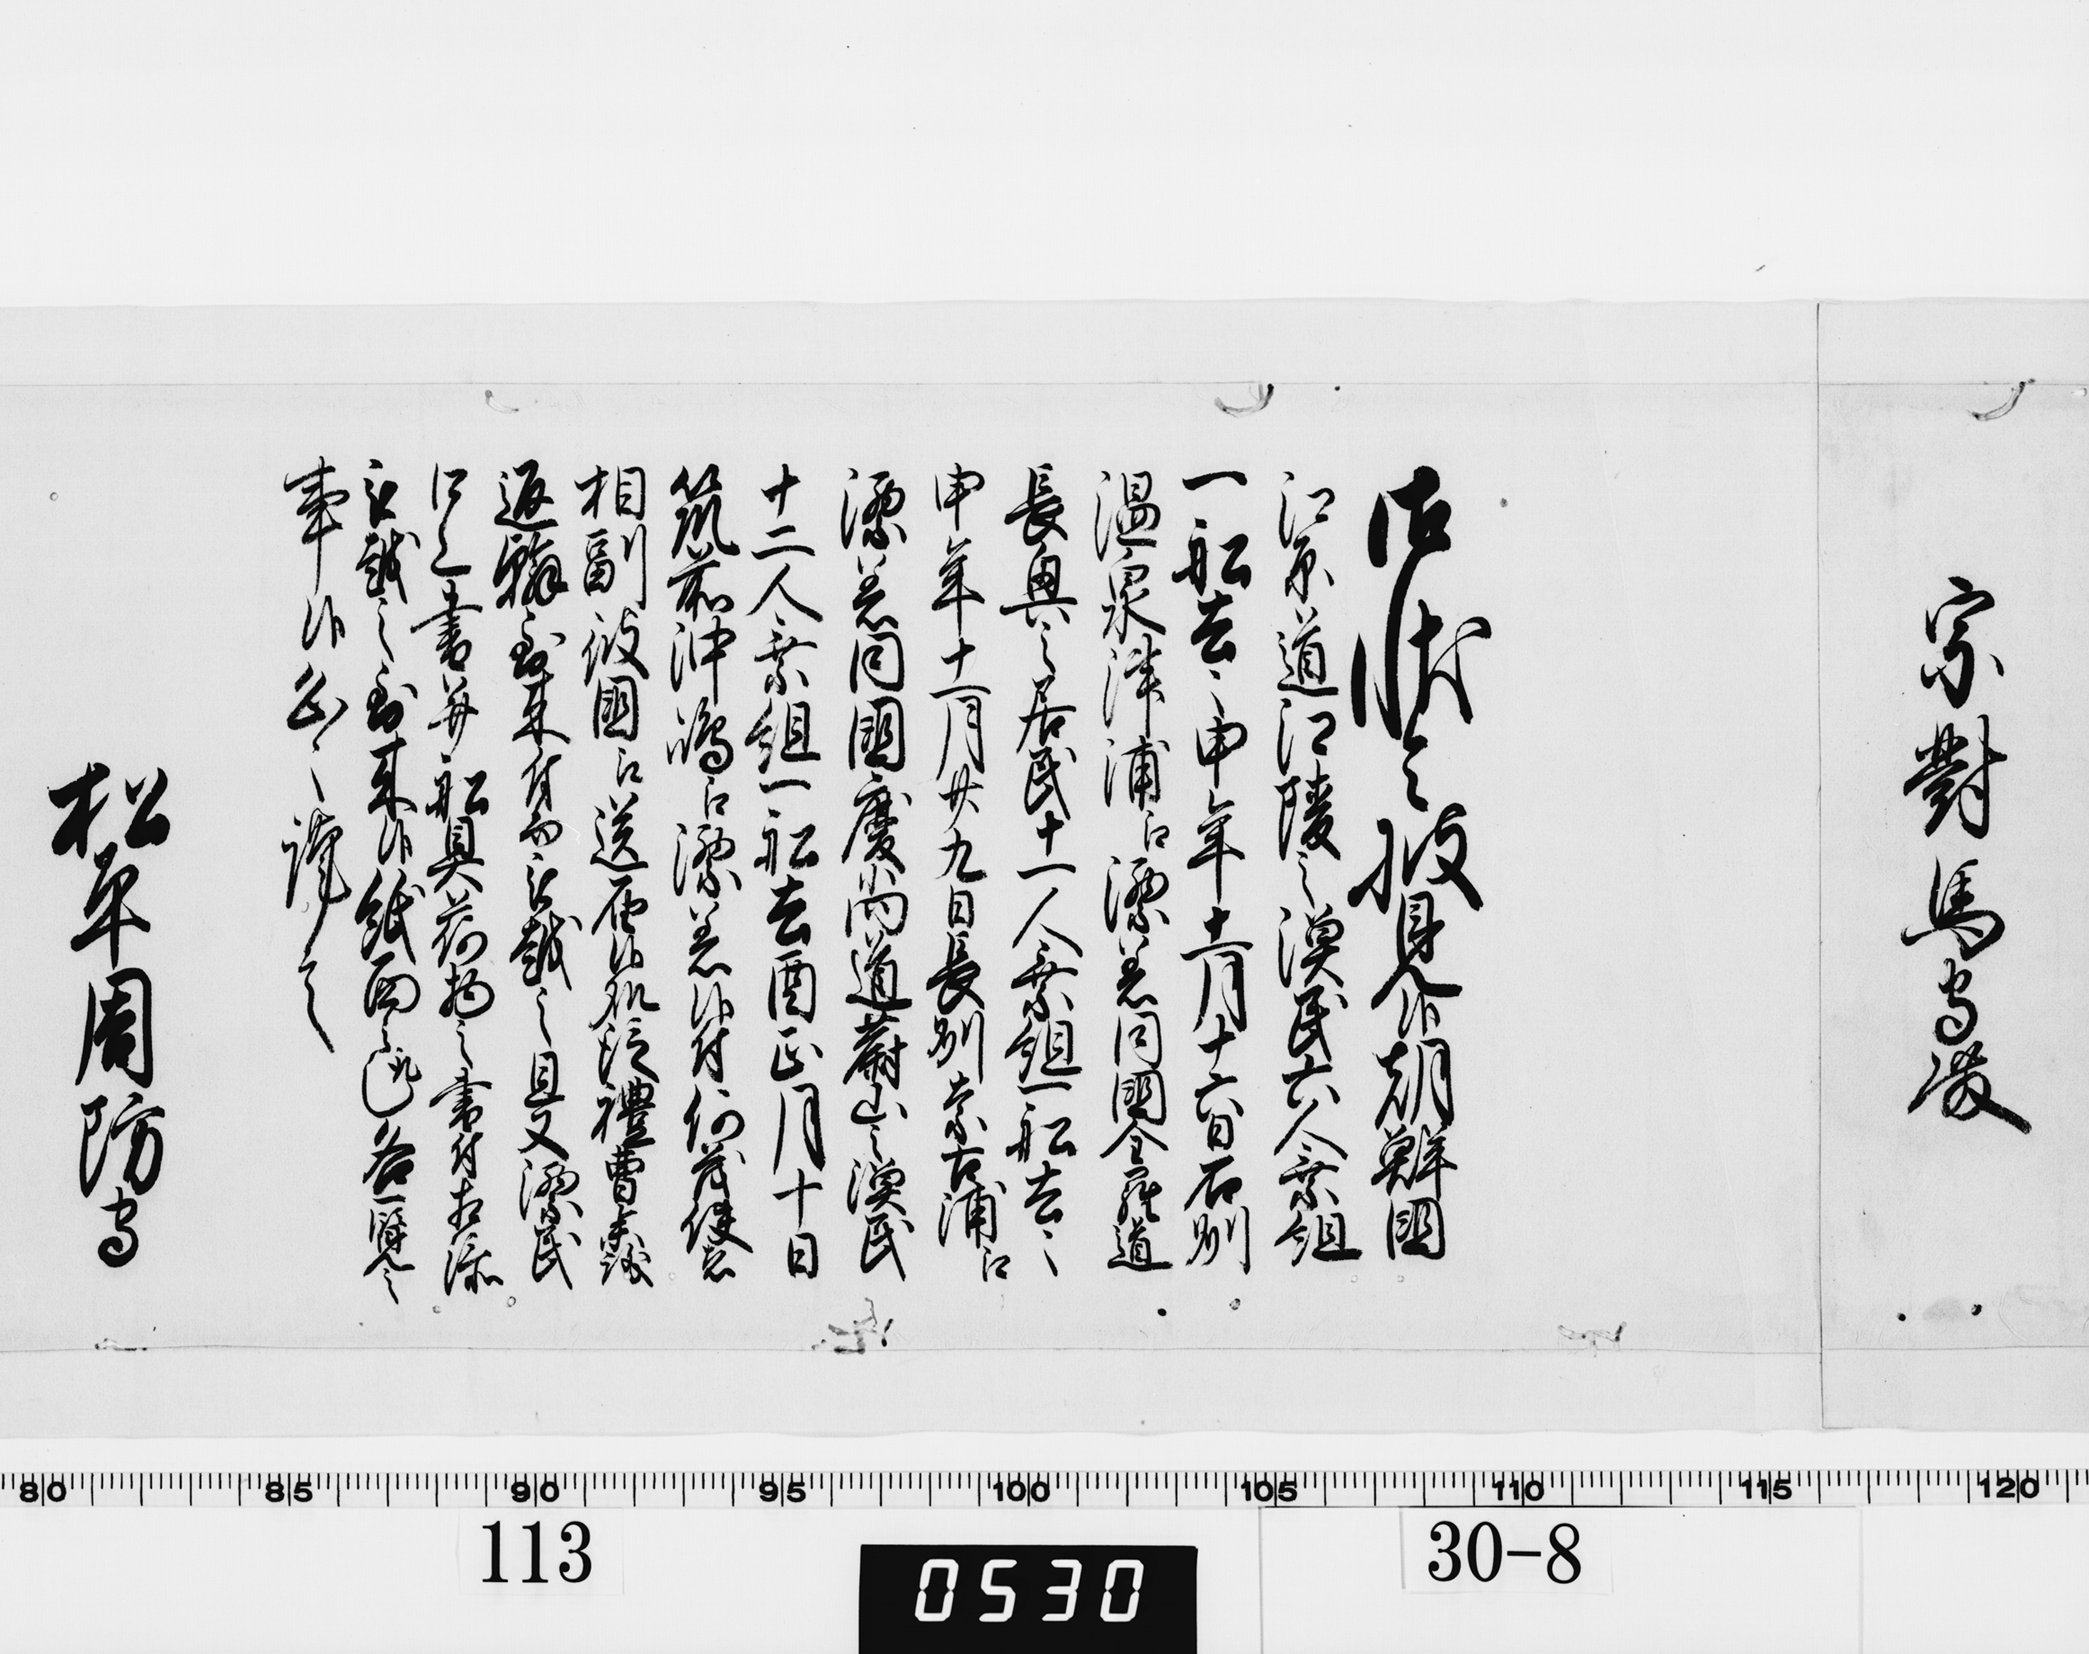 宗對馬守殿
御状令披見候朝鮮国
江原道江陵之漁民六人乗組
一船去々申年十二月十六日石州
温泉津浦江漂着同国全羅道
長興之居民十一人乗組一船去々
申年十一月廿九日長州宗古浦江
漂着同国慶尚道蔚山之漁民
十二人乗組一船去酉正月十日
筑前沖嶋江漂着候付何茂使者
相副彼国江送届候処従禮曹参議
返翰到来付而被越之且又漂民
口上書并船具荷物之書付相添
被越之到来候紙面之趣各一覧之
事候恐々謹言
松平周防守
80 85 90 95 100 105 110 115 120
113
0530
30-8